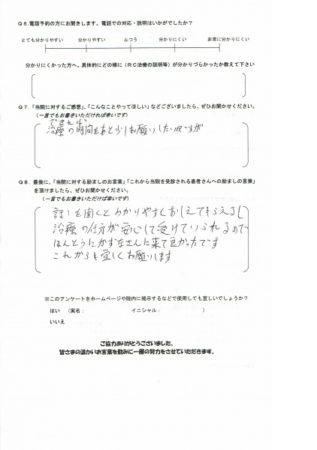 Q6.電話予約の方にお聞きします。電話での対応・説明はいかがでしたか?
とても分かりやすい 分かりやすい ふつう 分かりにくい 非常に分かりにくい
分かりにくかった方へ。具体的にどの様に(RC治療の説明等)が分かりづらかったか教えて下さい
Q7.「当院に対するご感想」、「こんなことやってほしい」などございましたら、ぜひお聞かせください。
(一言でもお書きいただければ幸いです)
できれば
治療の時間をあと少しお願いしたい
Q8.最後に、「当院に対する励ましのお言葉」「これから当院を受診される患者さんへの励ましの言葉」
を頂けましたら、ぜひお聞かせください。
(一言でもお書きいただけば幸いです)
話しを聞くとわかりやすくおしえてもらえるし
治療の仕方が安心して受けていられるので
ほんとうにかずなせんに来て良かたです
これからも宜しくお願いします
※このアンケートをホームページや院内に掲示するなどで使用しても宜しいでしょうか?
はい (実名: イニシャル: )
いいえ
ご協力ありがとうございました。
皆さまの温かいお言葉を励みに一層の努力をさせていただきます。